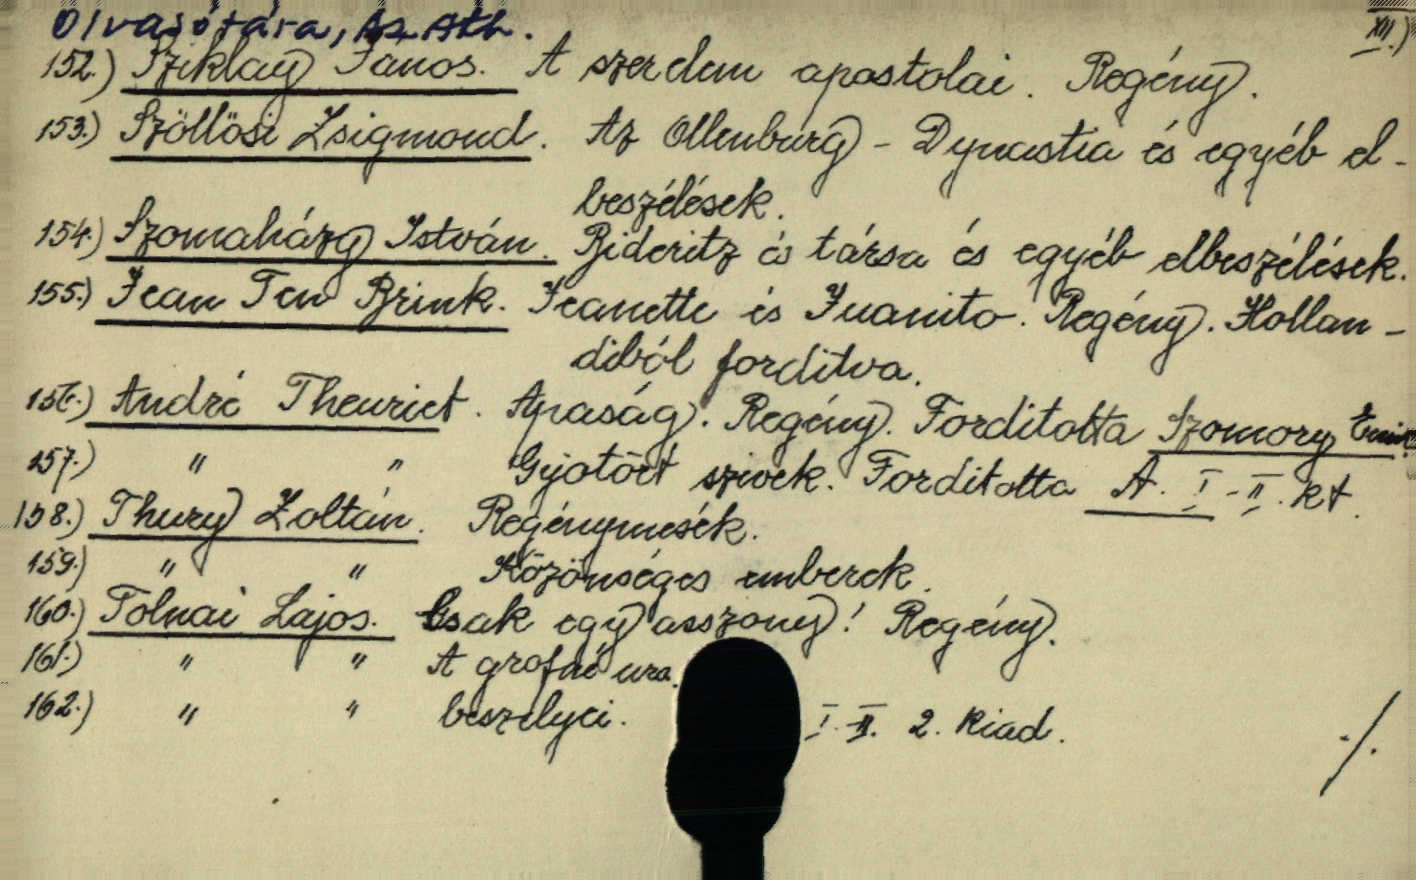 Olvasótára, Az Ath.
XII.)
152.) Sziklay János. A szerelem apostolai. Regény.
153.) Szöllösi Zsigmond. Az Ollenburg - Dynastia és egyéb el-
beszélések.
154.) Szomaházy István. Bideritz és társa és egyéb elbeszélések.
155.) Jean Ten Brink. Jeanette és Juanito. Regény. Hollan-
diból forditva.
156.) André Theuriet. Apaság. Regény. Forditotta Szomory Emil.
157.) " " Gyötört szivek. Forditotta A. I-II. kt.
158.) Thury Zoltán. Regénymesék.
159.) " " Közönséges emberek.
160.) Tolnai Lajos. Csak egy asszony! Regény.
161.) " " A grófné ura.
162.) " " beszélyei. I.-II. 2. kiad.
./.